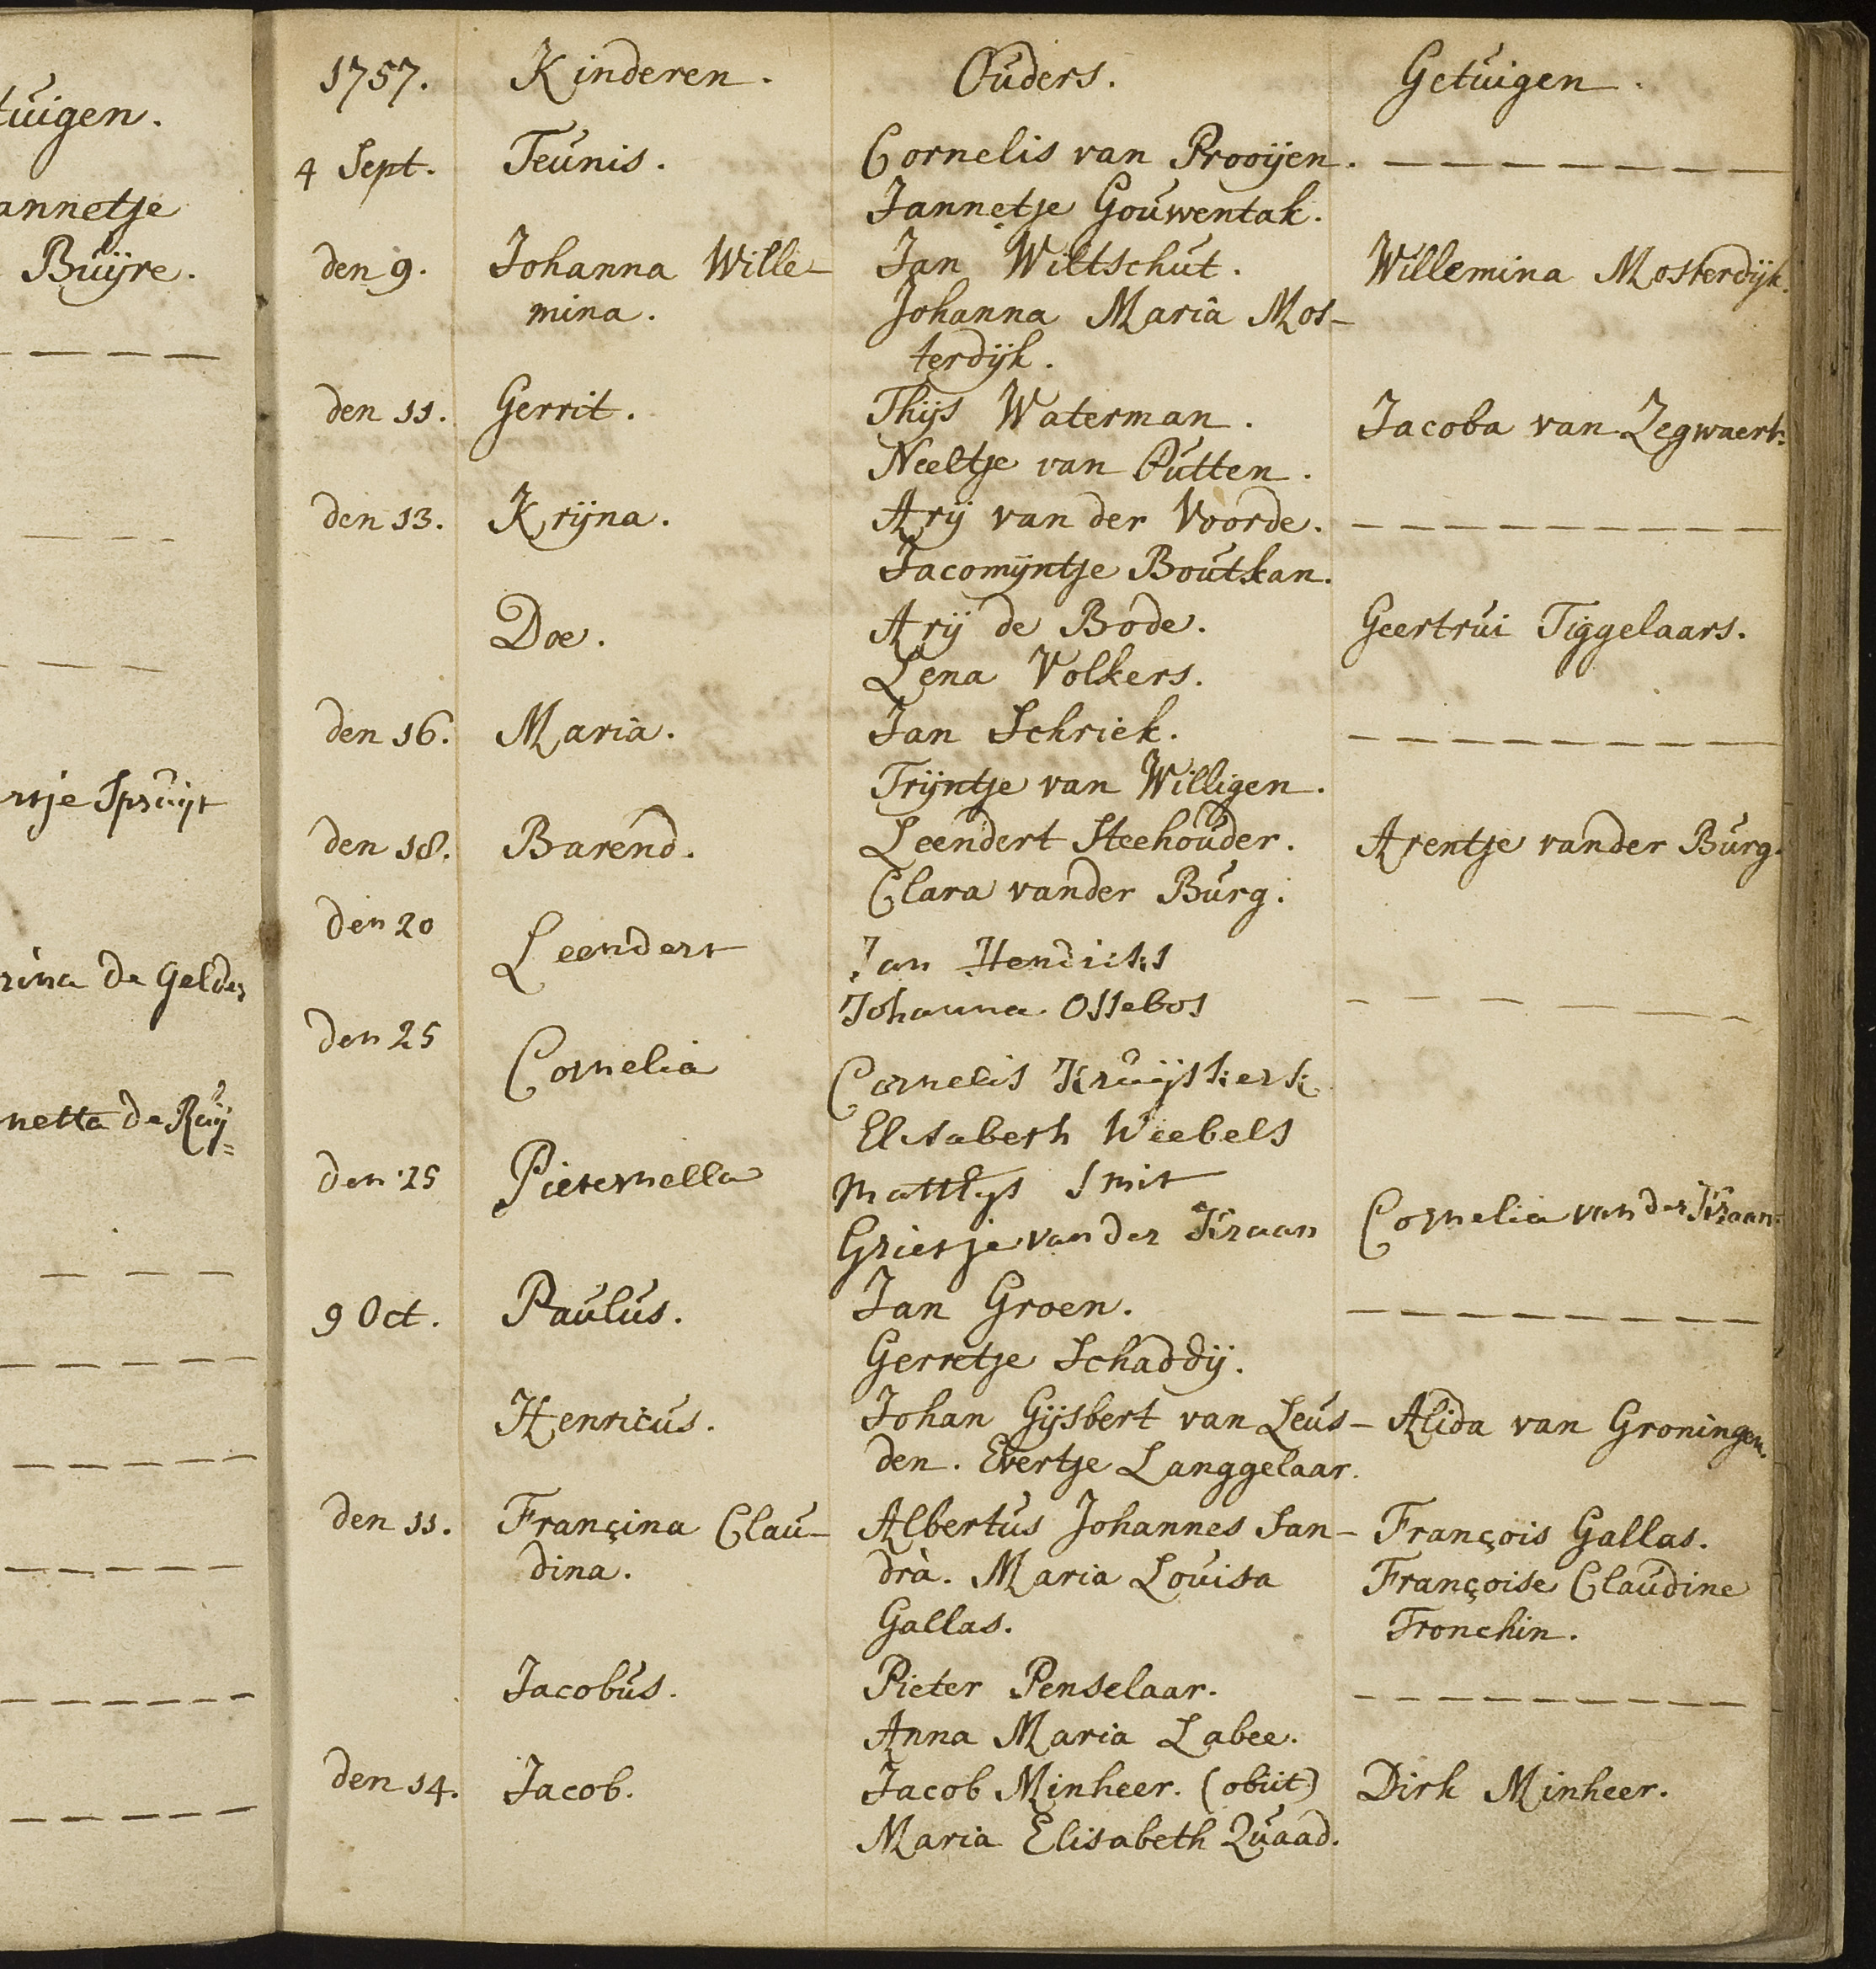 tuigen.
annetje
Buijre.
rtje Spruijt
rina de Gelder
netta de Ruij=
1757. Kinderen. Ouders. Getuigen.
4 Sept. Teunis. Cornelis van Prooijen. — — — — — — — —
Jannetje Gouwentak.
den 9. Johanna Wille- Jan Wiltschut. Willemina Mosterdijk.
mina. Johanna Maria Mos-
terdijk.
den 11. Gerrit. Thijs Waterman. Jacoba van Zegwaert.
Neeltje van Putten.
den 13. Krijna. Arij van der Voorde. — — — — — — — —
Jacomijntje Boutkan.
Doe. Arij de Bode. Geertrui Tiggelaars.
Lena Volkers.
den 16. Maria. Jan Schriek. — — — — — — — —
Trijntje van Willigen.
den 18. Barend. Leendert Steehouder. Arentje vander Burg.
Clara vander Burg.
den 20 Leendert Jan Hendriks
Johanna Ossebos — — — — — —
den 25 Cornelia Cornelis Kruijskerk
Elisabeth Weebels
den 25 Pieternella Matthys Smit
Grietje van der Kraan Cornelia van der Kraan.
9 Oct. Paulus. Jan Groen. — — — — — — — —
Gerretje Schaddij.
Henricus. Johan Gijsbert van Leus- Alida van Groningen.
den. Evertje Langgelaar.
den 11. Françina Clau- Albertus Johannes San- François Gallas.
dina. drà. Maria Louisa Françoise Claudine
Gallas. Tronchin.
Jacobus. Pieter Penselaar. — — — — — — — —
Anna Maria Labee.
den 14. Jacob. Jacob Minheer. (obiit) Dirk Minheer.
Maria Elisabeth Quaad.